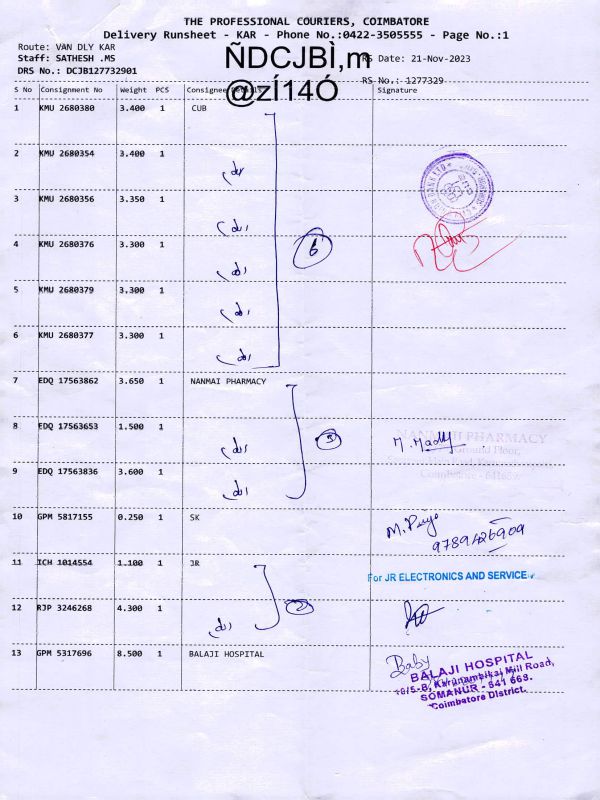 THE PROFESSIONAL COURIERS, COIMBATORE
Delivery Runsheet - KAR - Phone No.:0422-3505555 - Page No.:1
Route: VAN DLY KAR
Staff: SATHESH .MS
DRS No.: DCJB127732901
ÑDCJBÌ,m
@zÍ14Ó
RS Date: 21-Nov-2023
RS No.: 1277329
S No Consignment No Weight PCS Consignee Details Signature
1 KMU 2680380 3.400 1 CUB
2 KMU 2680354 3.400 1
3 KMU 2680356 3.350 1
4 KMU 2680376 3.300 1 6
5 KMU 2680379 3.300 1
6 KMU 2680377 3.300 1
7 EDQ 17563862 3.650 1 NANMAI PHARMACY
8 EDQ 17563653 1.500 1 3 M. Madhy
NANMAI PHARMACY
Ground Floor,
Coimbatore - 641659
9 EDQ 17563836 3.600 1
10 GPM 5817155 0.250 1 SK M. Priya
9789426909
11 ICH 1014554 1.100 1 JR For JR ELECTRONICS AND SERVICE
12 RJP 3246268 4.300 1 2
13 GPM 5317696 8.500 1 BALAJI HOSPITAL Baby
BALAJI HOSPITAL
16/5-B, Karunambikai Mill Road,
SOMANUR - 641 668.
Coimbatore District.